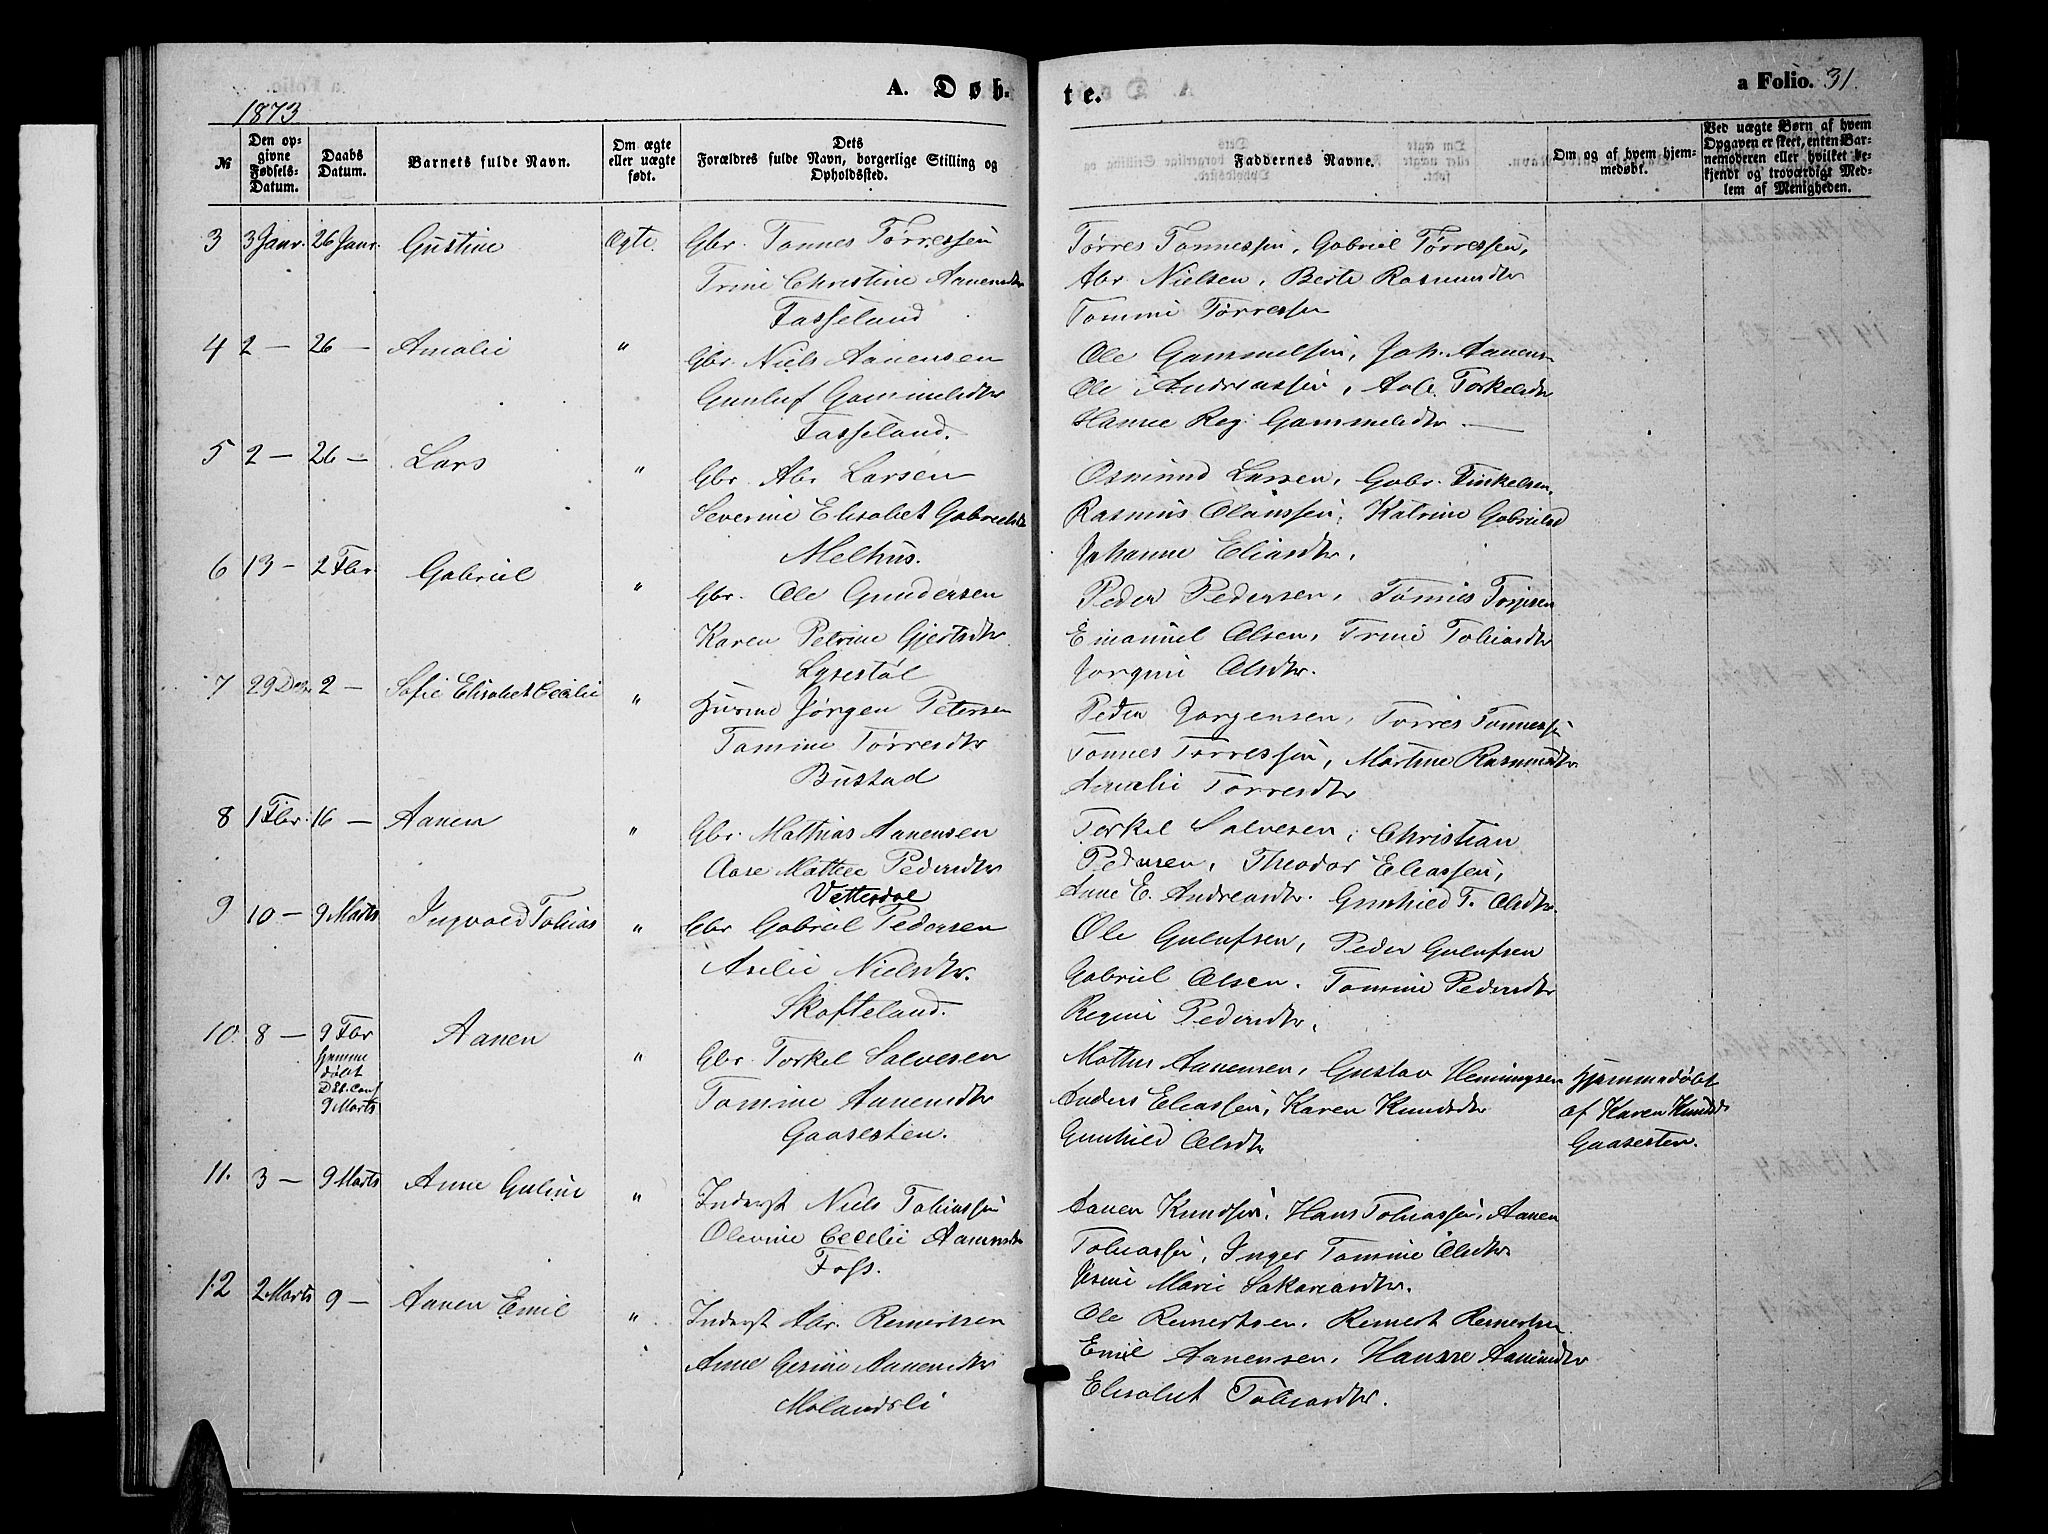 A. Døb-
te.
a Folio. 31.
1873
№
Den op-
givne
Fødsels-
Datum.
Daabs
Datum.
Barnets fulde Navn.
Om ægte
eller uægte
født.
Dets
Forældres fulde Navn, borgerlige Stilling og
Opholdssted.
Faddernes Navne.
Om og af hvem hjem-
medøbt.
Ved uægte Børn af hvem
Opgaven er skeet, enten Bar-
nemoderen eller hvilket be-
kjendt og troværdigt Med-
lem af Menigheden.
3 3 Janr. 26 Janr. Gustine Ægte. Gbr. Tønnes Tørressen
Trine Christine Aanensdtr
Fasseland
Tørres Tønnessen, Gabriel Tørressen,
Abr Nielsen, Berte Rasmusdtr
Tomine Tørresse
4 2 — 26 — Amalie " Gbr. Niels Aanensen
Gunluf Gammelsdtr
Fasseland.
Ole Gammelsen, Joh. Aanens
Ole Andreassen, Aale Torkelsdtr
Hanne Reg. Gammelsdtr. —
5 2 — 26 — Lars " Gbr. Abr Larsen
Severine Elisabet Gabrielsdtr
Melhus.
Osmund Larsen, Gabr. Tinkelsen,
Rasmus Olaussen, Katrine Gabrielsd
Johanne Eliasdtr,
6 13 — 2 Fbr Gabriel " Gbr. Ole Gundersen
Karen Petrine Gjertsdtr
Lysestøl
Peder Pedersen, Tønnes Torjesen
Emanuel Olsen, Trine Tobiasdtr
Jørgine Olsdtr.
7 29 Des. 2 — Sofie Elisabet Cecilie " Husmd Jørgen Petersen
Tomine Tørresdtr
Bustad
Peder Jørgensen, Tørres Tønnessen
Tønnes Tørressen, Martine Rasmusdtr
Amalie Tørresdtr
8 1 Fbr. 16 — Aanen " Gbr. Mathias Aanensen
Aase Mathee Pedersdtr
Vetterdal
Torkel Salvesen, Christian
Pedersen, Theodor Eliassen,
Anne E. Andreasdtr. Gunhild T. Olsdtr.
9 10 — 9 Marts Ingvald Tobias " Gbr Gabriel Pedersen
Aselie Nielsdtr.
Skofteland.
Ole Gulufsen, Peder Gulufsen
Gabriel Olsen. Tomine Pedersdtr
Regine Pedersdtr,
10. 8 — 9 Fbr
hjemme
døbt
Dbt. Conf
9 Marts
Aanen " Gbr. Torkel Salvesen
Tomine Aanensdtr
Gaasesten.
Mathis Aanensen, Gustav Hemingsen
Anders Eliassen, Karen Knudsdtr
Gunhild Olsdtr
Hjemmedøbt
af Karen Knudsdtr
Gaasesten.
11. 3 — 9 Marts Anne Guline " Inderst Niels Tobiassen
Olevine Cecelie Aanensdtr
Foss.
Aanen Knudsen, Hans Tobiassen, Aanen
Tobiassen, Inger Tomine Olsdtr
Josine Marie Sakariasdtr.
12 2 Marts 9 — Aanen Emil " Inderst Abr. Reinertsen
Anne Gesine Aanensdtr
Molandsli
Ole Reinertsen, Reinert Reinertsen
Emil Aanensen, Hanne Aanensdtr
Elisabet Tobiasdtr.